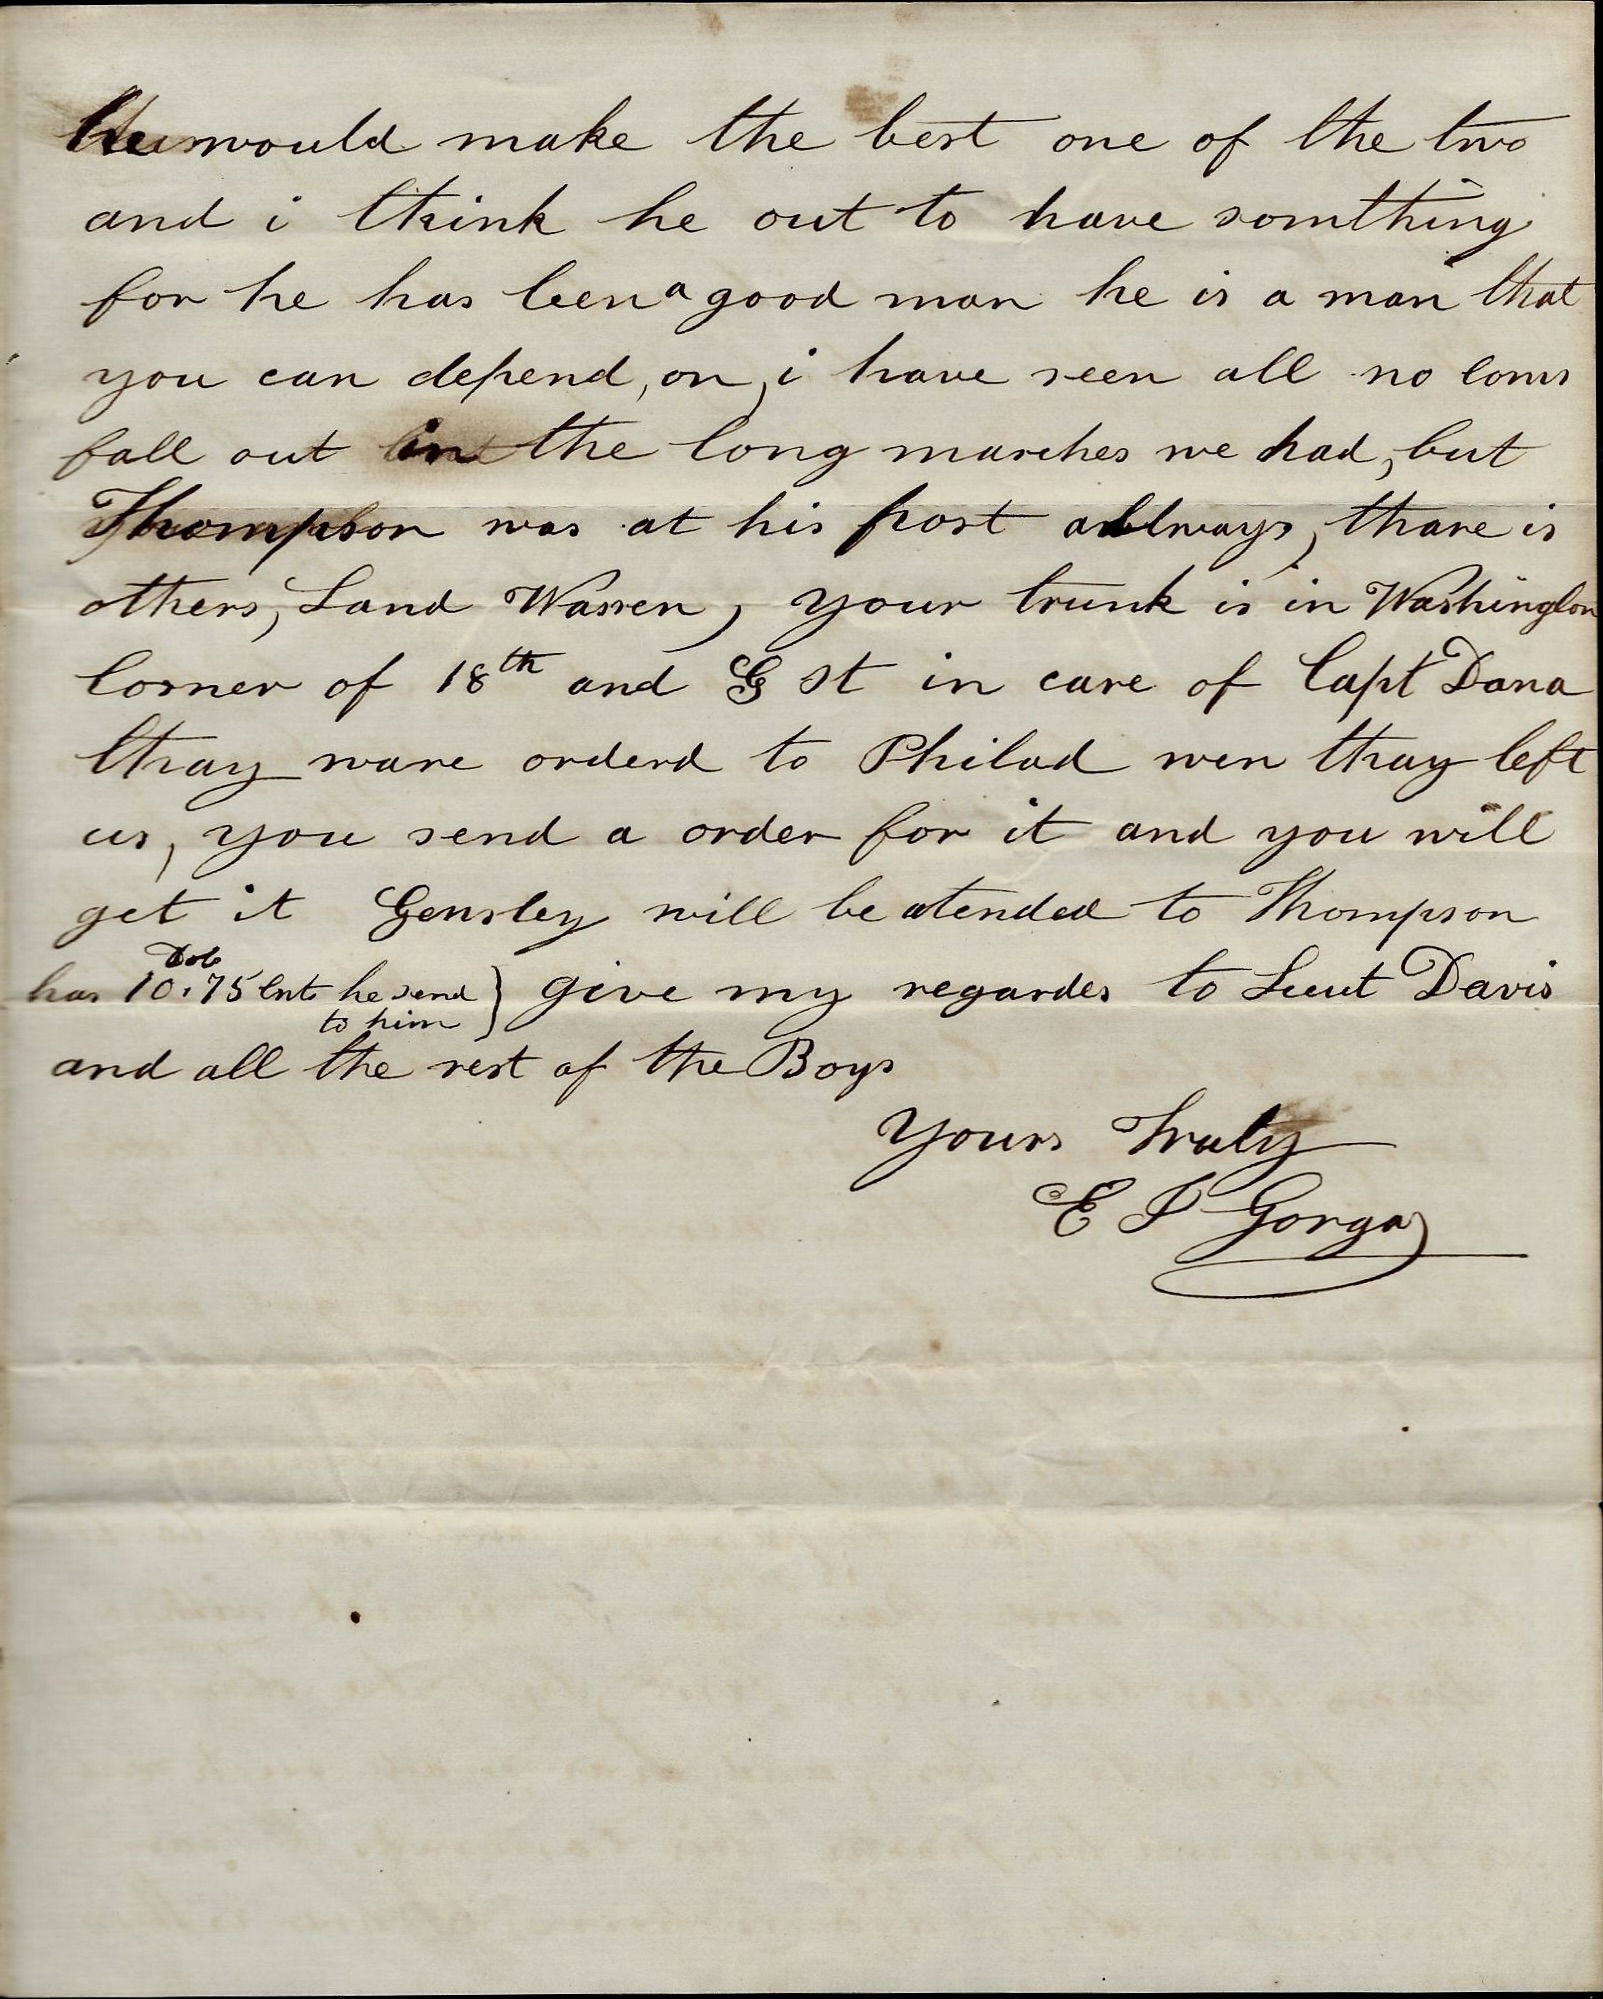 he would make the best one of the two
and i think he out to have somthing
for he has been a good man he is a man that
you can depend, on, i have seen all no
fall out in the long marches we had, but
Thompson was at his post allways, thare is
others, Land Warren, your trunk is in Washington
Corner of 18th and G St in care of Capt Dana
thay ware orderd to Philad wen thay left
us, you send a order for it and you will
get it Gensley will be atended to Thompson
has 10.75 Dol Cnts he send to him } give my regardes to Lieut Davis
and all the rest of the Boys
Yours Truly
E J Gorgas